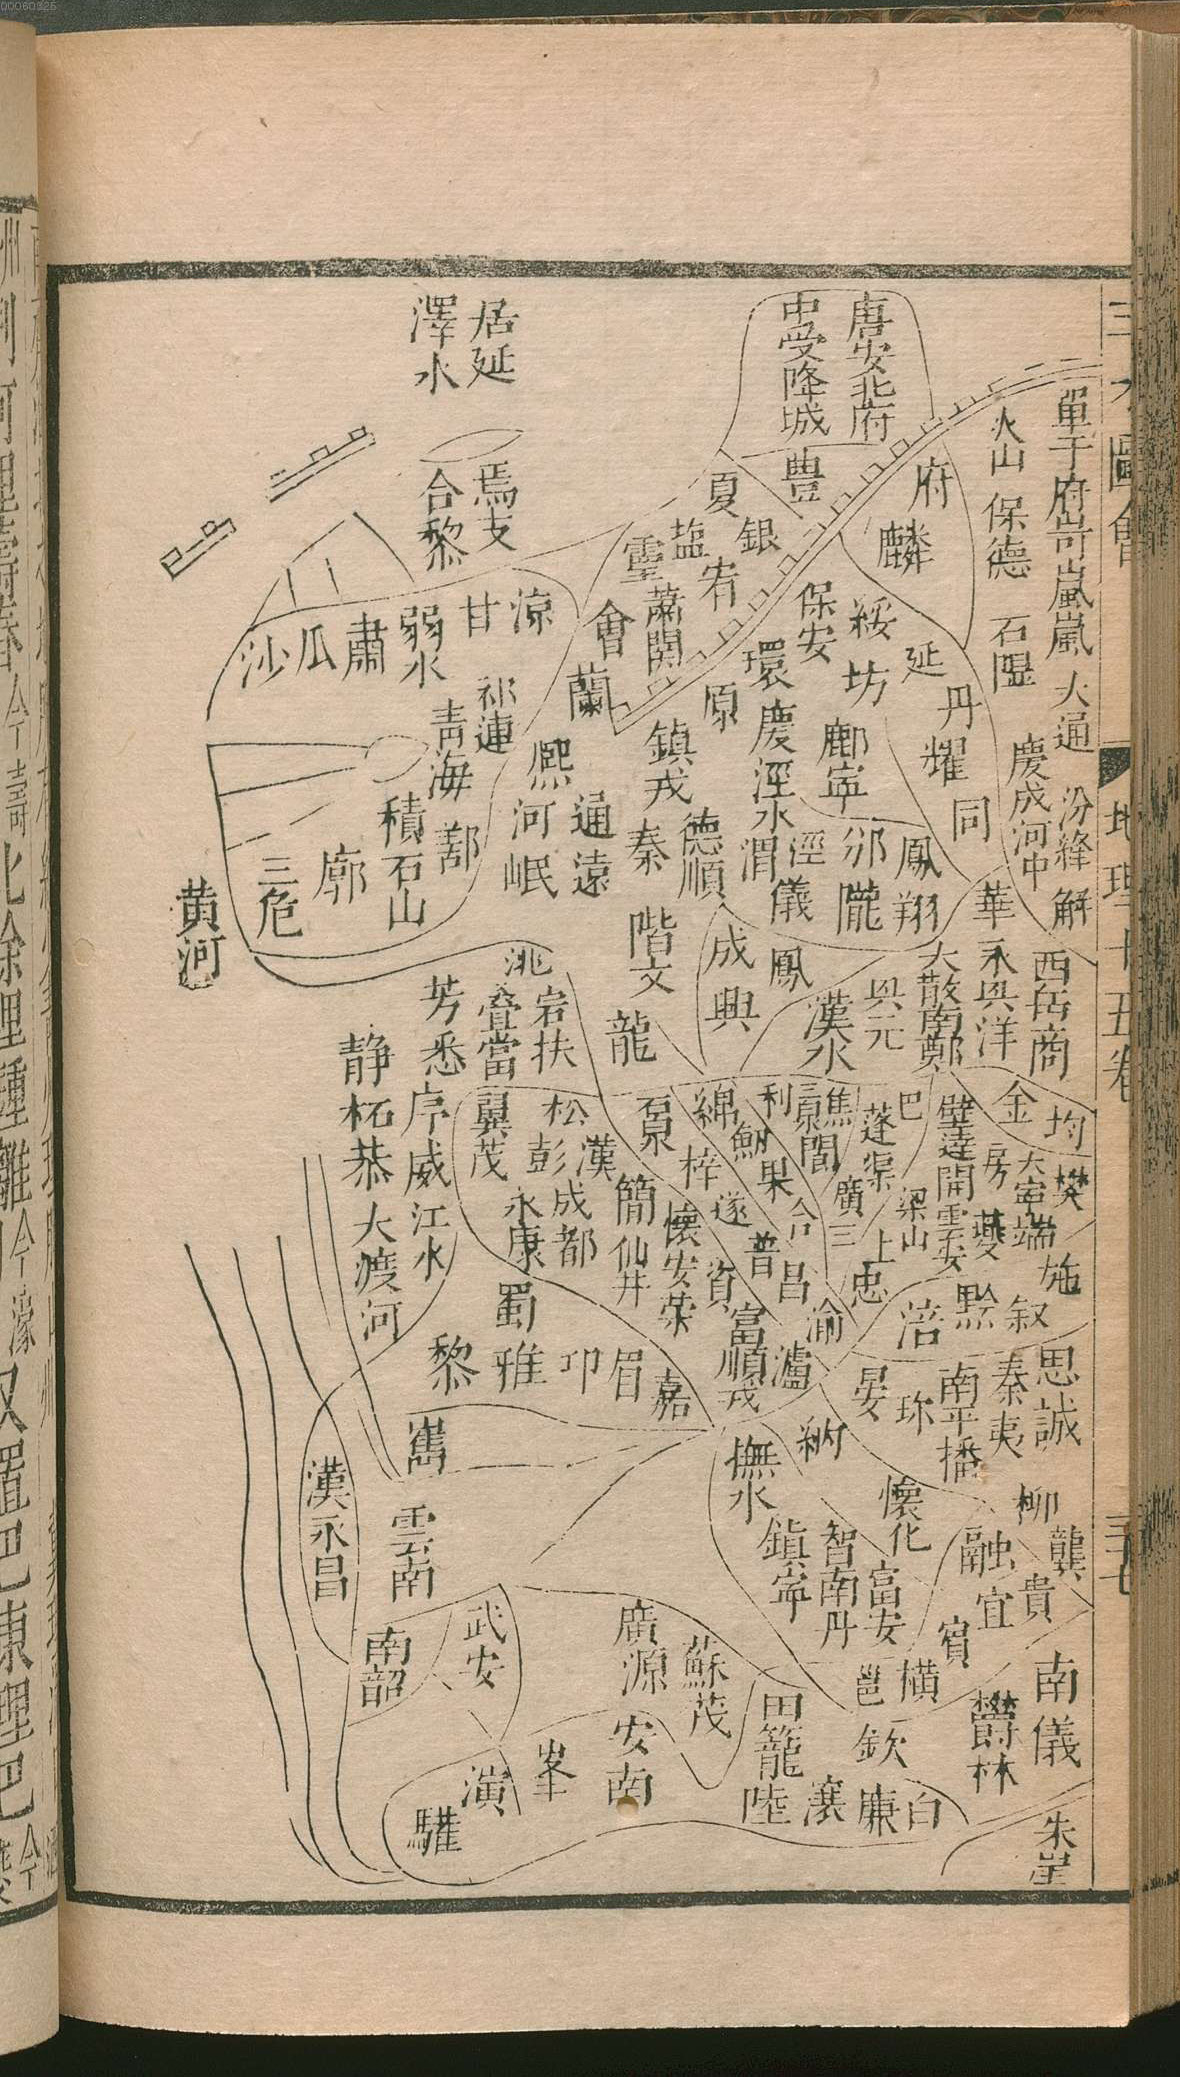 三才圖會
地理十五卷
三七
單于府岢嵐嵐
大通
汾絳解
西岳商
均
樊
施
思誠
柳
龔
貴
南儀
朱崖
火山
保德
石隰
慶成河中
華
永興洋
金
房
大寧端
夔
叙
秦夷
融宜
欎林
唐安北府
中受降城
豊
府
麟
延
丹
耀
同
鳳翔
大散南鄭
巴
壁達開雲安
梁山
黔
涪
南平播
珎
賔
橫
白
綏
坊
鄜寧
邠
隴
興元
蓬渠
廣
三
上
忠
晏
懷化
富安
邕
欽
廉
保安
環
慶涇水
渭
涇
儀
鳳
漢水
閬
利
果
合
昌
渝
瀘
納
智南丹
瀼
夏
銀
宥
塩
靈
蕭関
原
鎮戎
德順
秦
成
興
階文
龍
綿
梓
遂
普
資
富順
戎
撫水
鎮寧
田籠
陸
會
蘭
熙
河
岷
通遠
洮
宕扶
疊當
翼茂
松
彭
漢
成都
永康
簡
仙井
懷安
荣
蜀
雅
卭
眉
嘉
黎
廣源
蘇茂
安南
峯
居延
澤水
焉支
合黎
涼
甘
弱水
肅
瓜
沙
祁連
青海
鄯
積石山
廓
三危
黄河
芳
悉
静
柘
恭
序
威
江水
大渡河
嶲
雲南
漢永昌
武安
南詔
演
驩